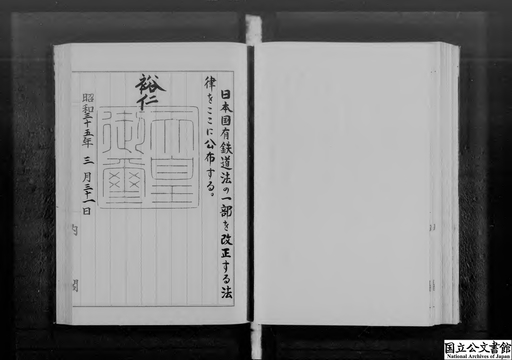 日本国有鉄道法の一部を改正する法
律をここに公布する。
裕仁
天皇
御璽
昭和三十五年三月三十一日
内閣
国立公文書館
National Archives of Japan